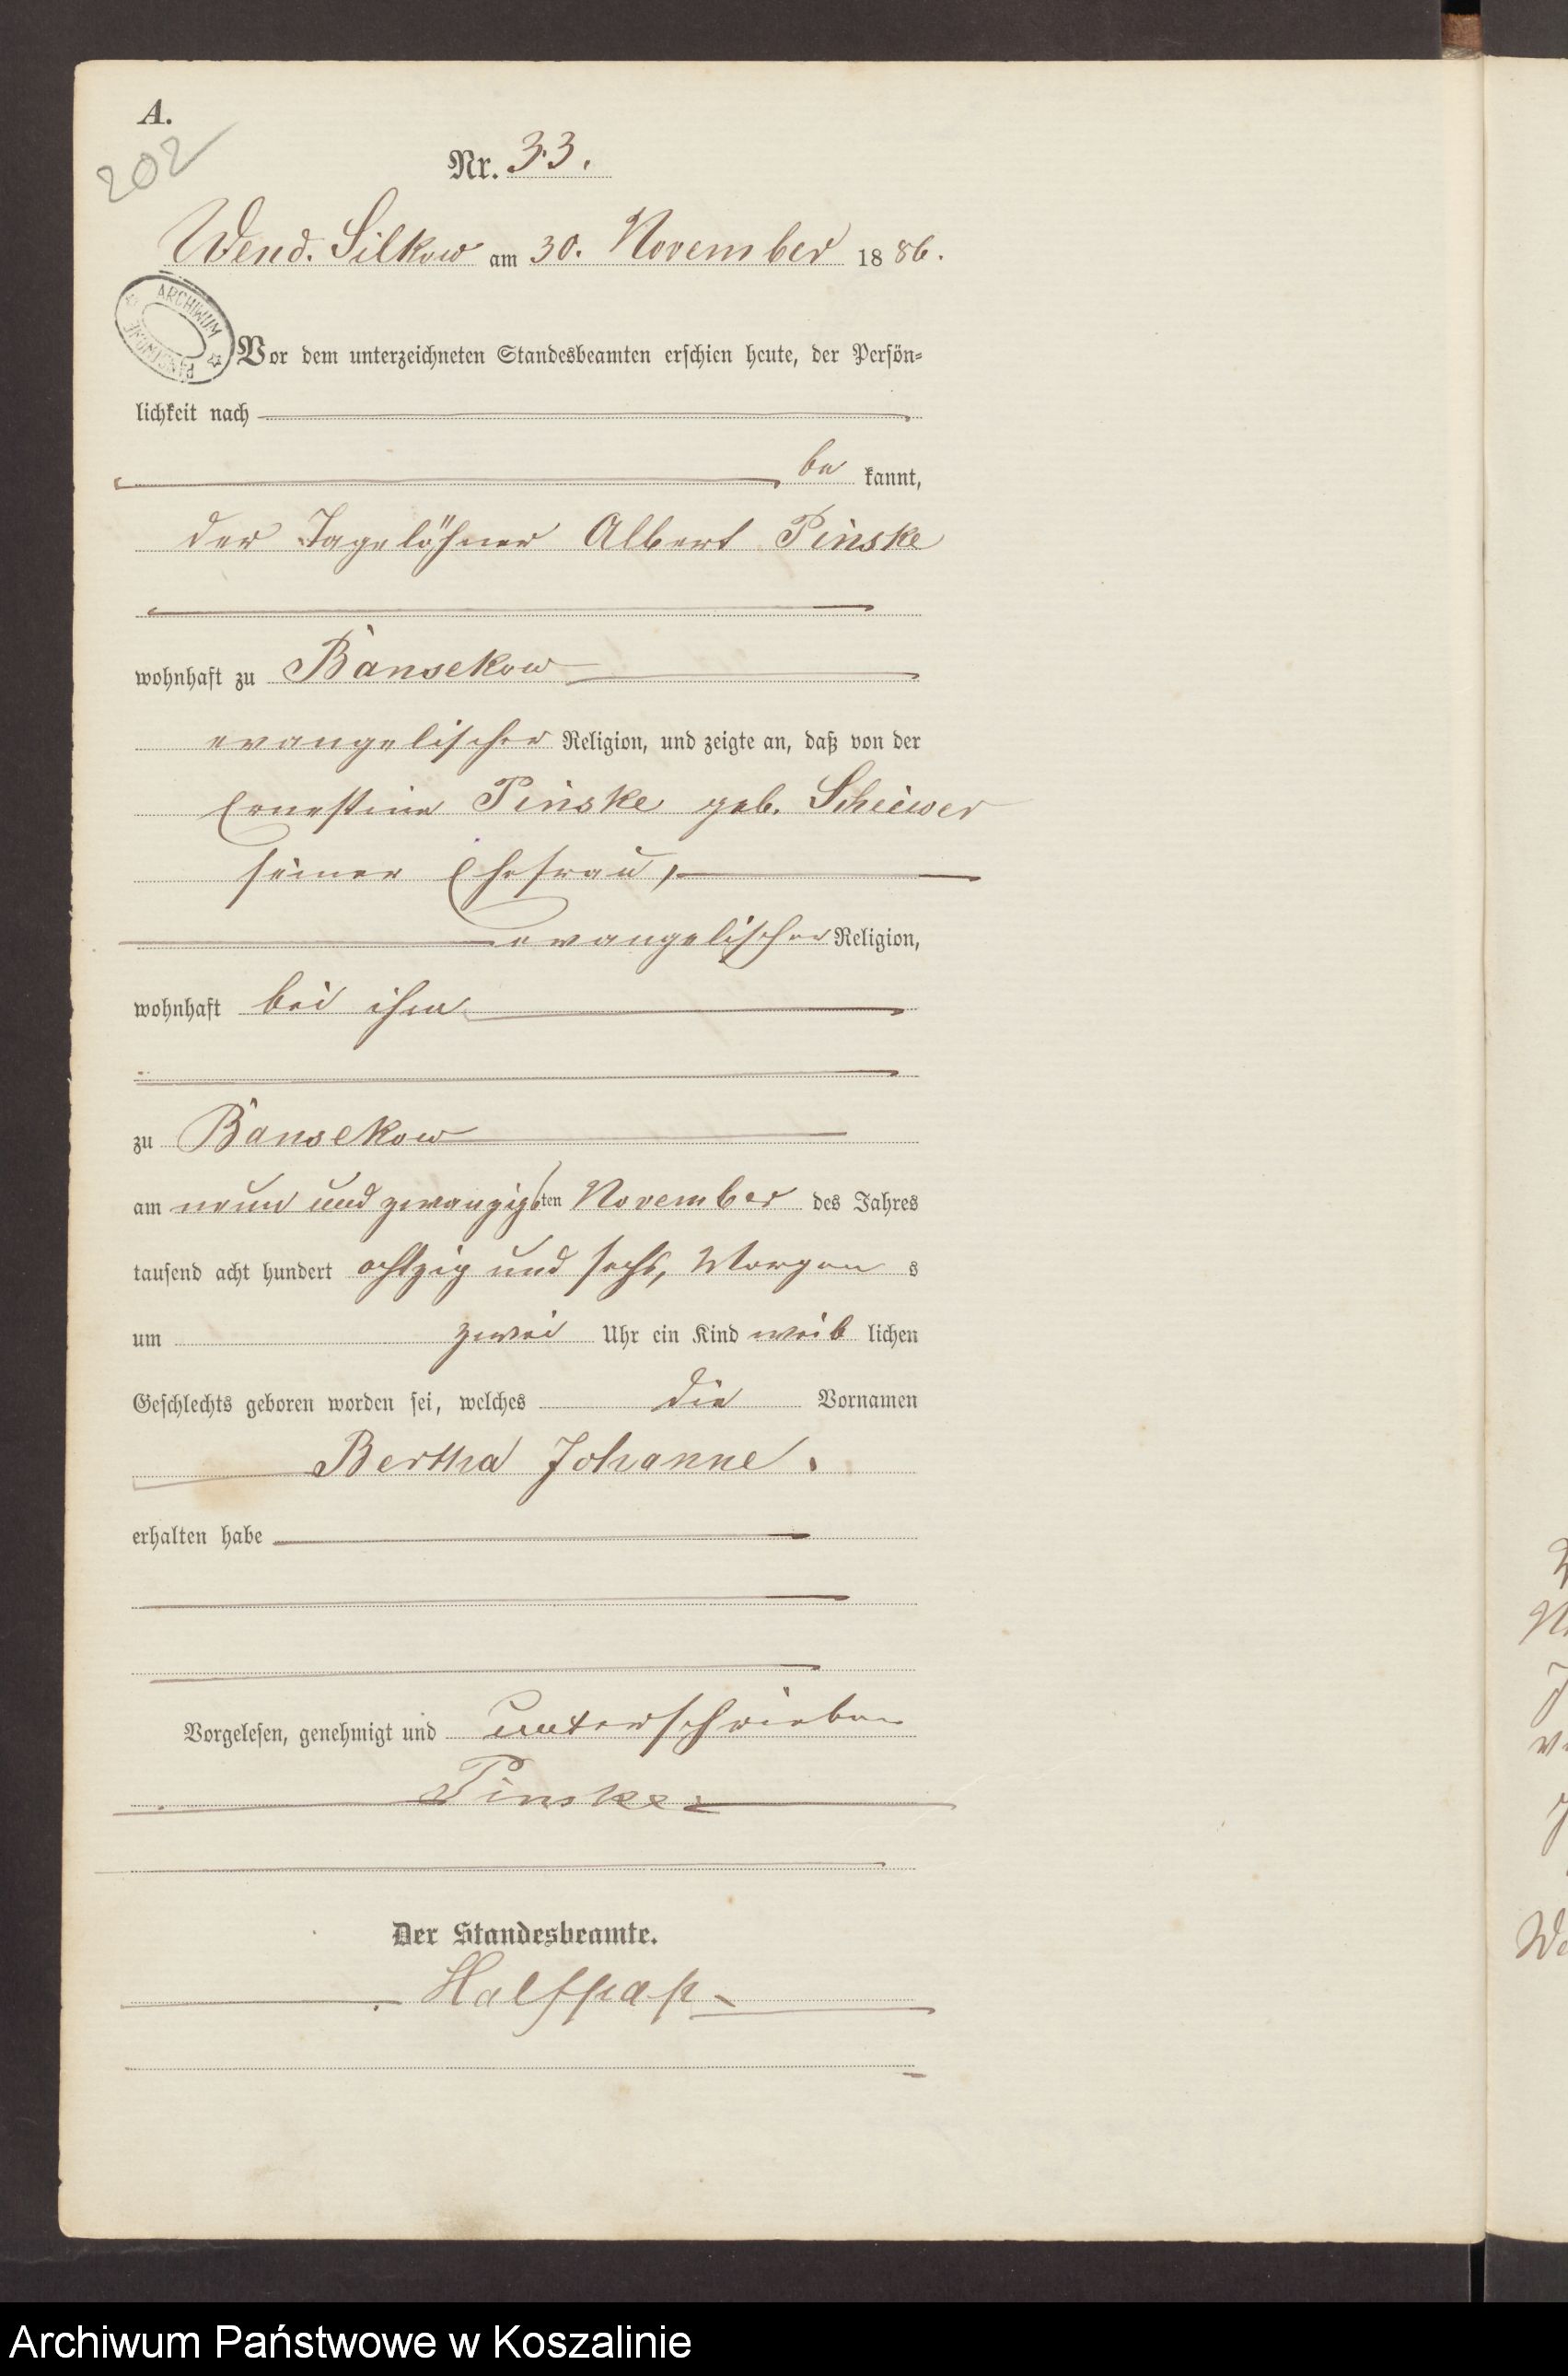 A.
202
Nr. 33.
Wend. Silkow am 30. November 1886.
ARCHIWUM PAŃSTWOWE
Vor dem unterzeichneten Standesbeamten erschien heute, der Persön=
lichkeit nach
be kannt,
der Tagelöhner Albert Pinske
wohnhaft zu Bansekow
evangelischer Religion, und zeigte an, daß von der
Ernestine Pinske geb. Schiewer
seiner Ehefrau,
evangelischer Religion,
wohnhaft bei ihm
zu Bansekow
am neun und zwanzigsten November des Jahres
tausend acht hundert achtzig und sechs, Morgens
um zwei Uhr ein Kind weiblichen
Geschlechts geboren worden sei, welches die Vornamen
Bertha Johanne.
erhalten habe
Vorgelesen, genehmigt und unterschrieben
Pinske
Der Standesbeamte.
Halfpap
Archiwum Państwowe w Koszalinie